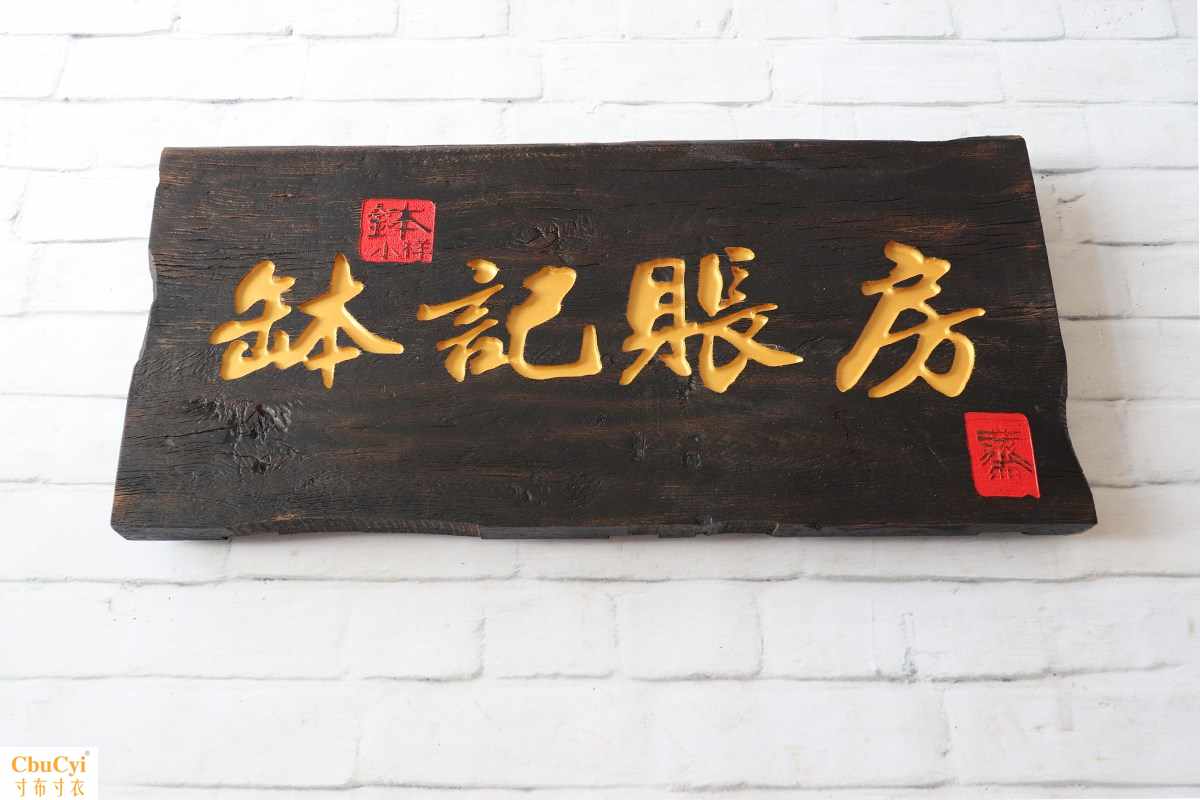 鉢
小样
缽記賬房
CbuCyi®
寸布寸衣